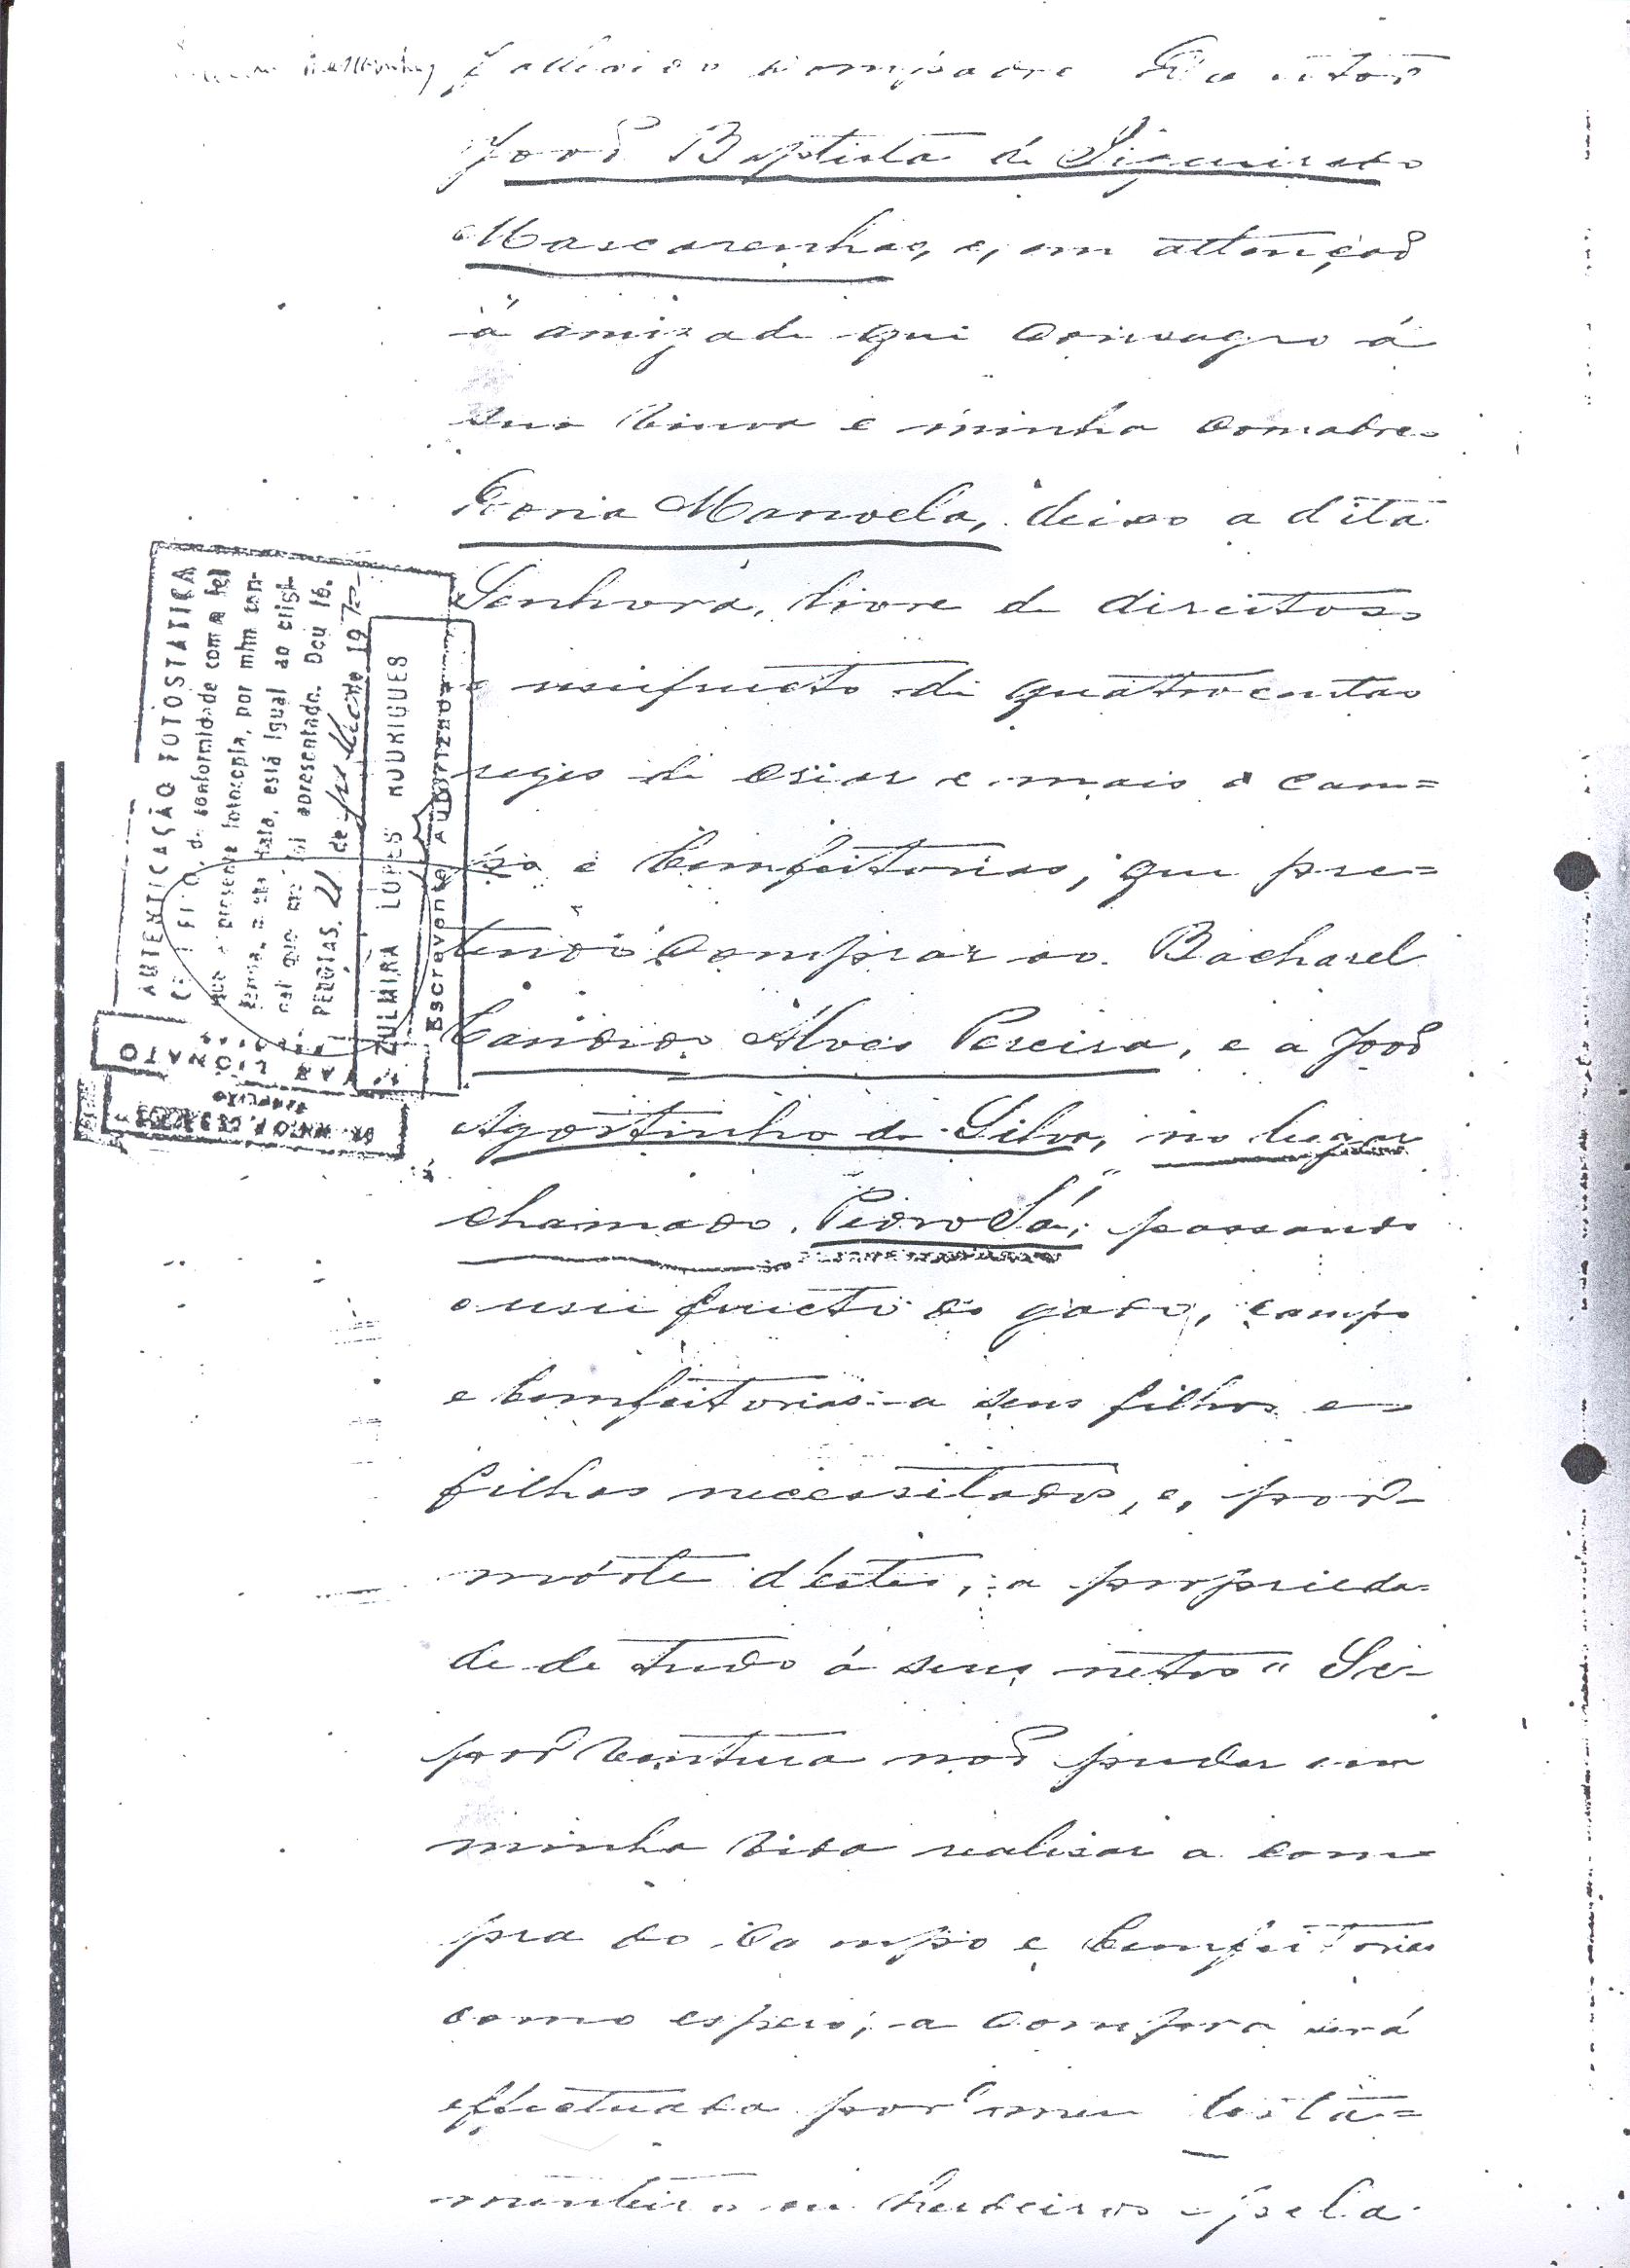 fallecido compadre Doutor
João Baptista de Figueiredo
Mascarenhas, e, em attenção
á amizade que consagro á
sua viuva e minha comadre
Dona Manoela, deixo a dita
Senhora, livre de direitos
o usufructo de quatrocentas
rezes de criar e mais o cam=
po e bemfeitorias, que pre=
tendo comprar ao Bacharel
Candido Alves Pereira, e a João
Agostinho da Silva, no lugar
chamado "Pedro Sá", passando
o usufructo do gado, campo
e bemfeitorias a seus filhos e
filhas necessitados, e, por
mórte d'estes, a proprieda=
de de tudo á seus netos" Se
por ventura não puder em
minha vida realisar a com=
pra do campo e bemfeitorias
como espero, a compra será
effectuada por meu testa=
menteiro ou herdeiros pela
AUTENTICAÇÃO FOTOSTÁTICA
CERTIFICO, de conformidade com a lei
que a presente fotocopia, por mim con-
data, está igual ao origi-
nal que me foi apresentado. Dou fé.
PELOTAS, 21 de de 197
ZULMIRA LOPES RODRIGUES
Escrevente Autorizado